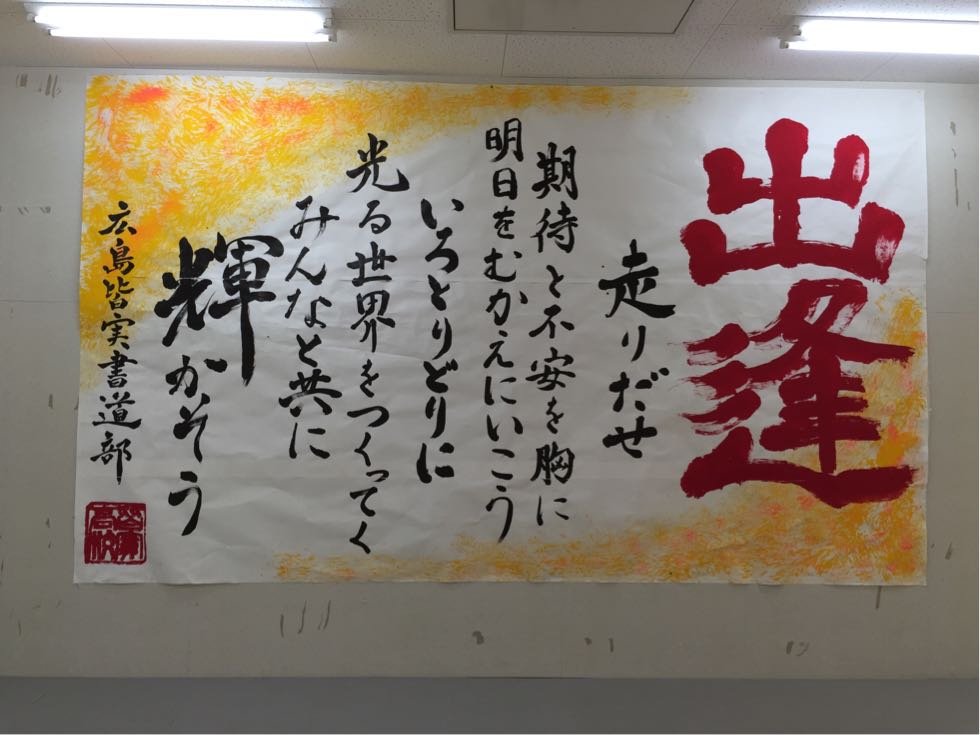 出逢
走りだせ
期待と不安を胸に
明日をむかえにいこう
いろとりどりに
光る世界をつくってく
みんなと共に
輝かそう
広島皆実書道部